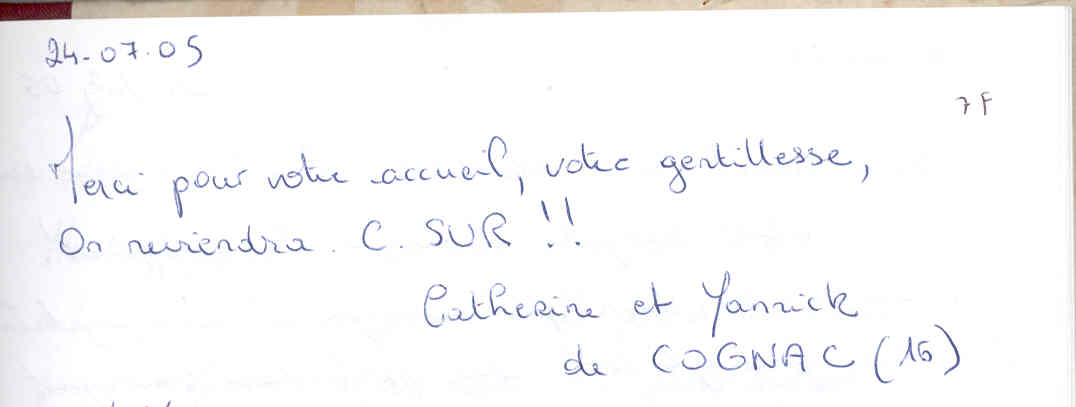 24-07.05
7F
Merci pour votre accueil, votre gentillesse,
On reviendra. C. SUR !!
Catherine et Yannick
de COGNAC (16)